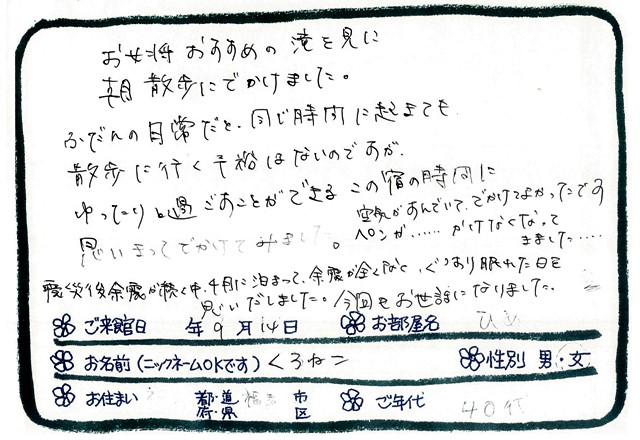 お女将おすすめの滝を見に
朝散歩にでかけました。
ふだんの日常だと、同じ時間に起きても
散歩に行く余裕はないのですが、
ゆったりと過ごすことができるこの宿の時間に
思いきってでかけてみました。
空気がすんでいて、でかけてよかったです
ペンが……かけなくなって
きました……
震災後余震が続く中、4月に泊まって、余震が全くなく、ぐっすり眠れた日を
思いだしました。今回もお世話になりました。
ご来館日 年9月14日 お部屋名
お名前(ニックネームOKです) くろねこ 性別 男・女
お住まい 都道府県 市区 ご年代 40代